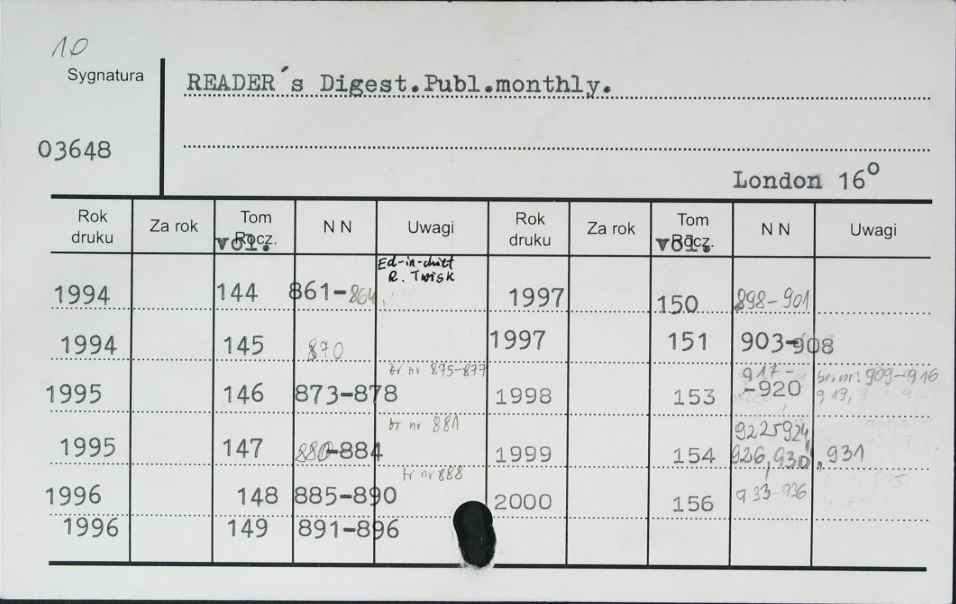 10
Sygnatura
READER´s Digest.Publ.monthly.
03648
London 16°
Rok druku Za rok Tom Rocz. vol. N N Uwagi Rok druku Za rok Tom Rocz. vol. N N Uwagi
Ed-in-chief
R. Twisk
1994 144 861-864, 1997 150 898-901
1994 145 870 1997 151 903-908
br nr 875-877 917- br. nr: 909-916
1995 146 873-878 1998 153 -920 919,
br nr 881 922 924,
1995 147 880-884 1999 154 926,930,,931
br nr 888
1996 148 885-890 2000 156 933-936
1996 149 891-896